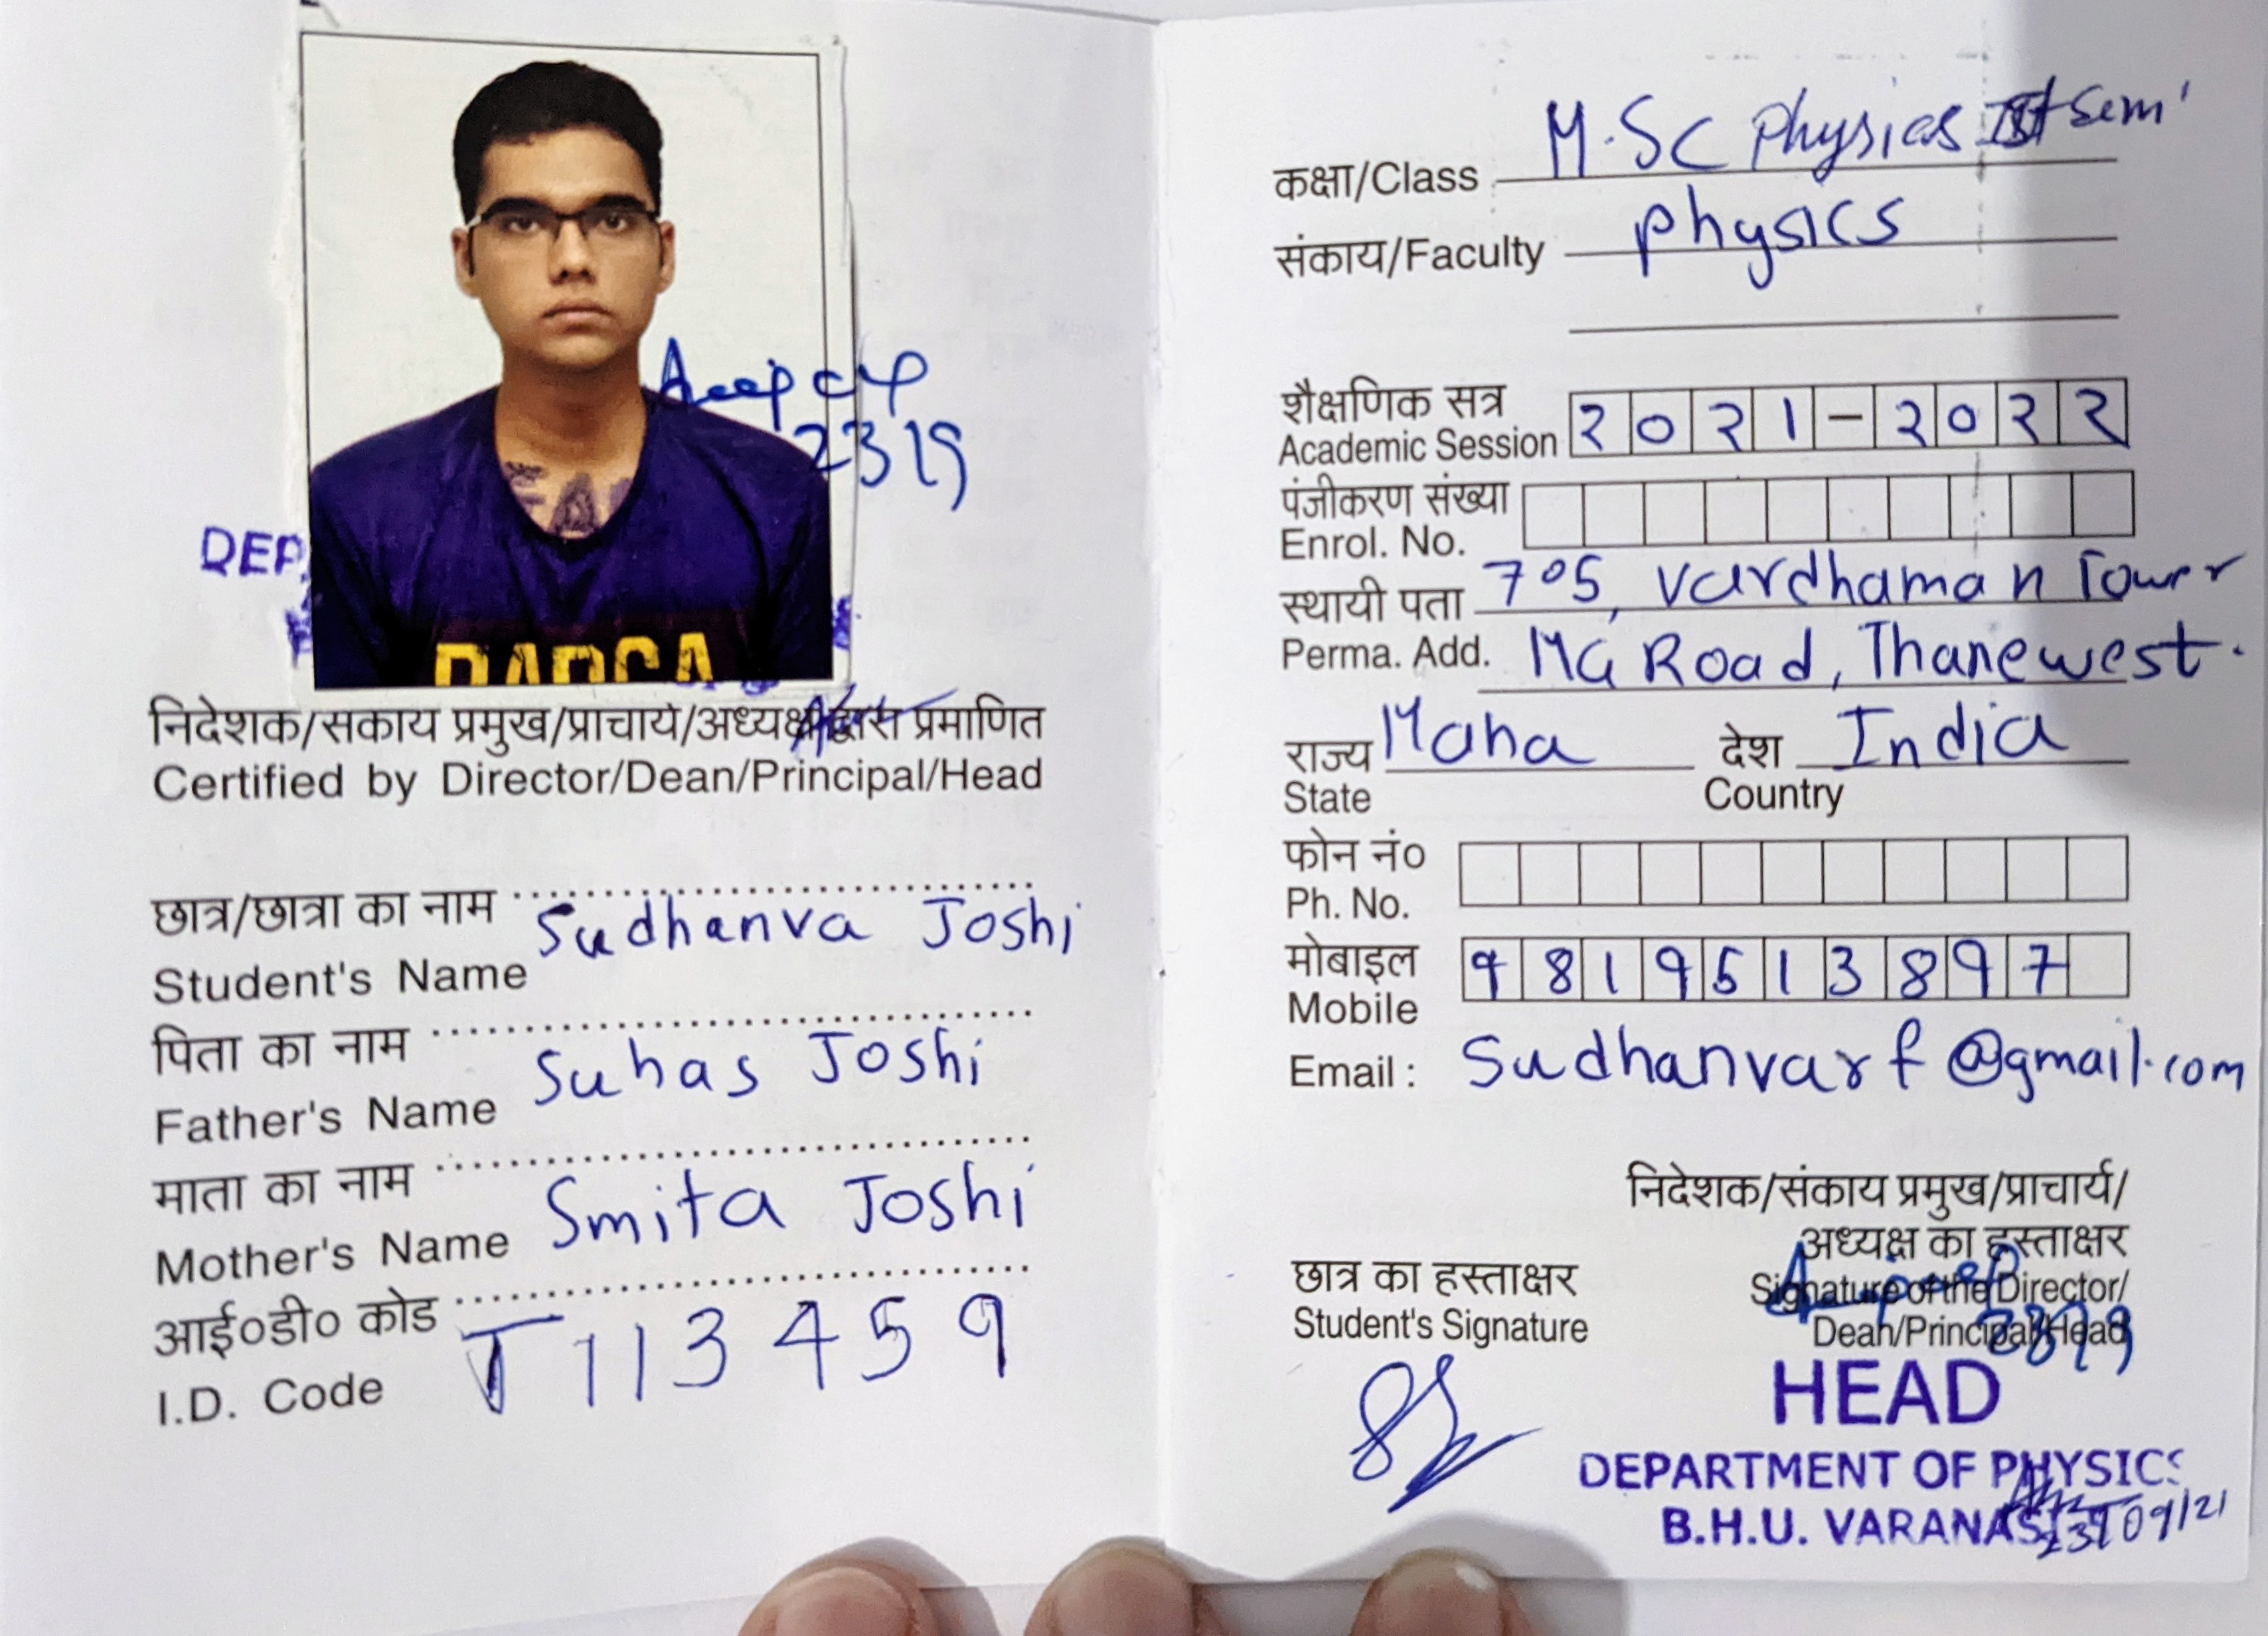 2319
DEP
निदेशक/संकाय प्रमुख/प्राचार्य/अध्यक्ष द्वारा प्रमाणित
Certified by Director/Dean/Principal/Head
छात्र/छात्रा का नाम
Student's Name Sudhanva Joshi
पिता का नाम
Father's Name Suhas Joshi
माता का नाम
Mother's Name Smita Joshi
आई०डी० कोड
I.D. Code T113459
कक्षा/Class M.SC Physics Ist Sem
संकाय/Faculty Physics
शैक्षणिक सत्र
Academic Session २०२१-२०२२
पंजीकरण संख्या
Enrol. No.
स्थायी पता 705, Vardhaman Tower
Perma. Add. MG Road, Thane west.
राज्य Maha देश India
State Country
फोन नं०
Ph. No.
मोबाइल 9819513897
Mobile
Email : Sudhanvarf@gmail.com
निदेशक/संकाय प्रमुख/प्राचार्य/
अध्यक्ष का हस्ताक्षर
छात्र का हस्ताक्षर Signature of the Director/
Student's Signature Dean/Principal/Head
HEAD
DEPARTMENT OF PHYSICS
B.H.U. VARANASI
23/09/21